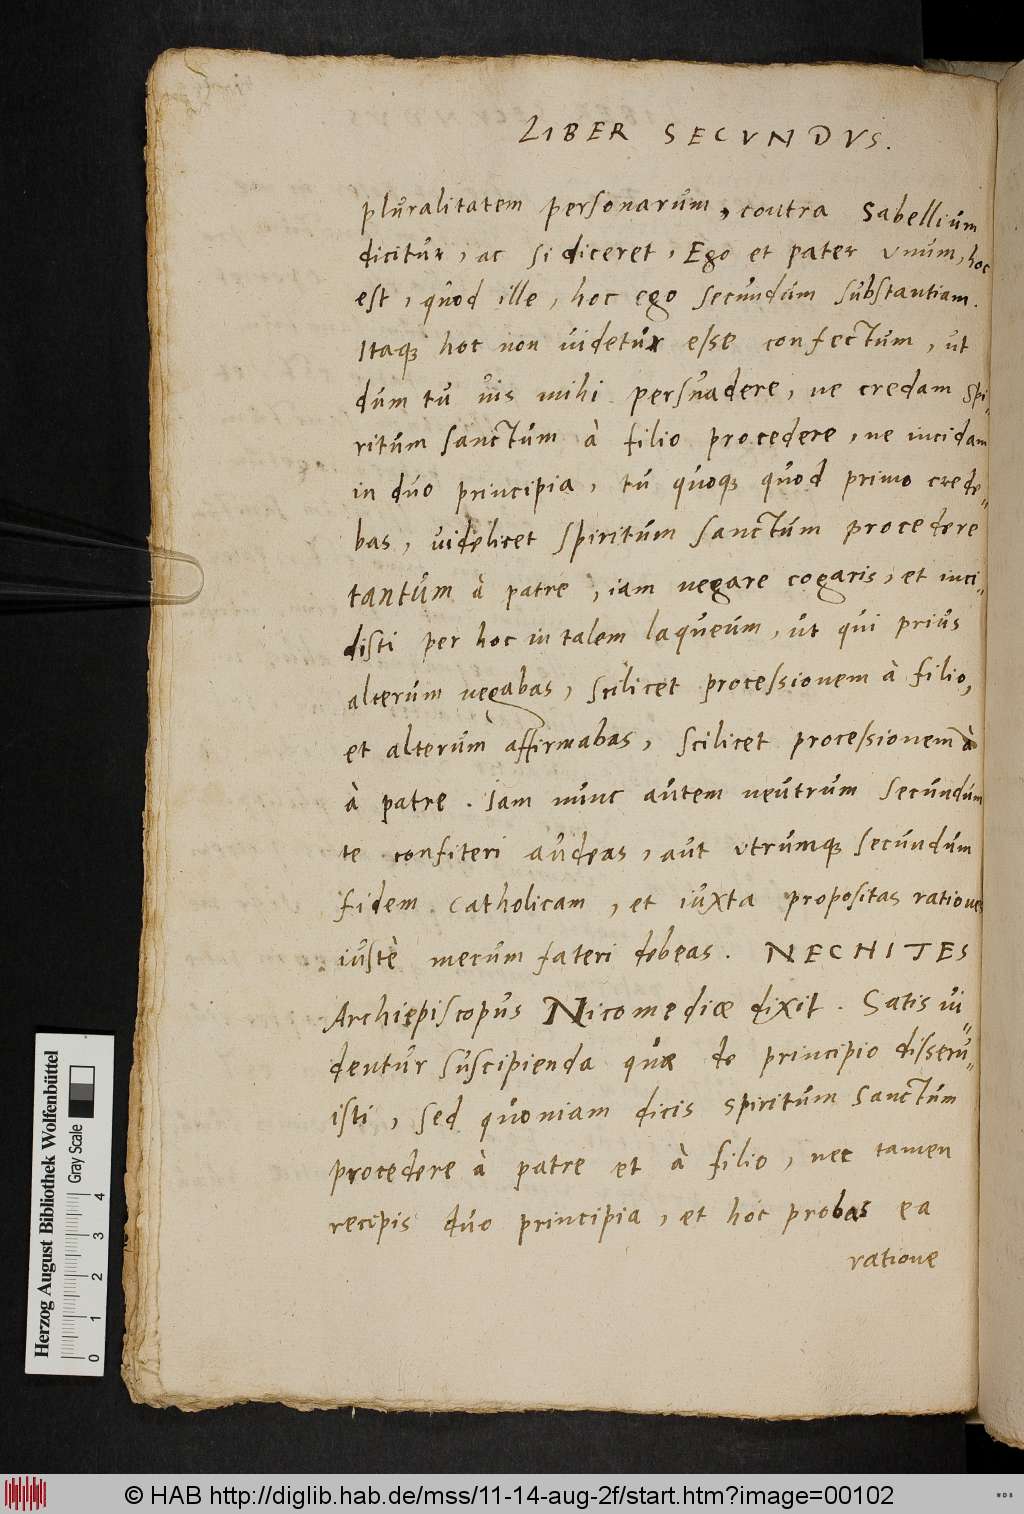 LIBER SECVNDVS.
pluralitatem personarum, contra Sabellium
dicitur, ac si diceret, Ego et pater vnum, hoc
est, quod ille, hoc ego secundum substantiam.
Itaq; hoc non uidetur esse confectum, ut
dum tu uis mihi persuadere, ne credam spi-
ritum sanctum à filio procedere, ne incidam
in duo principia, tu quoq; quod primo crede-
bas, videlicet spiritum sanctum procedere
tantum à patre, iam negare cogaris, et inci-
disti per hoc in talem laqueum, ut qui prius
alterum negabas, scilicet processionem à filio,
et alterum affirmabas, scilicet processionem à
à patre. Iam nunc autem neutrum secundum
te confiteri audeas, aut vtrumq; secundum
fidem catholicam, et iuxta propositas rationes
iustè mecum fateri debeas. NECHITES
Archiepiscopus Nicomediæ dixit. Satis ui-
dentur suscipienda quæ de principio disseru-
isti, sed quoniam dicis spiritum sanctum
procedere à patre et à filio, nec tamen
recipis duo principia, et hoc probas ea
ratione
Herzog August Bibliothek Wolfenbüttel
Gray Scale
0 1 2 3 4
© HAB http://diglib.hab.de/mss/11-14-aug-2f/start.htm?image=00102